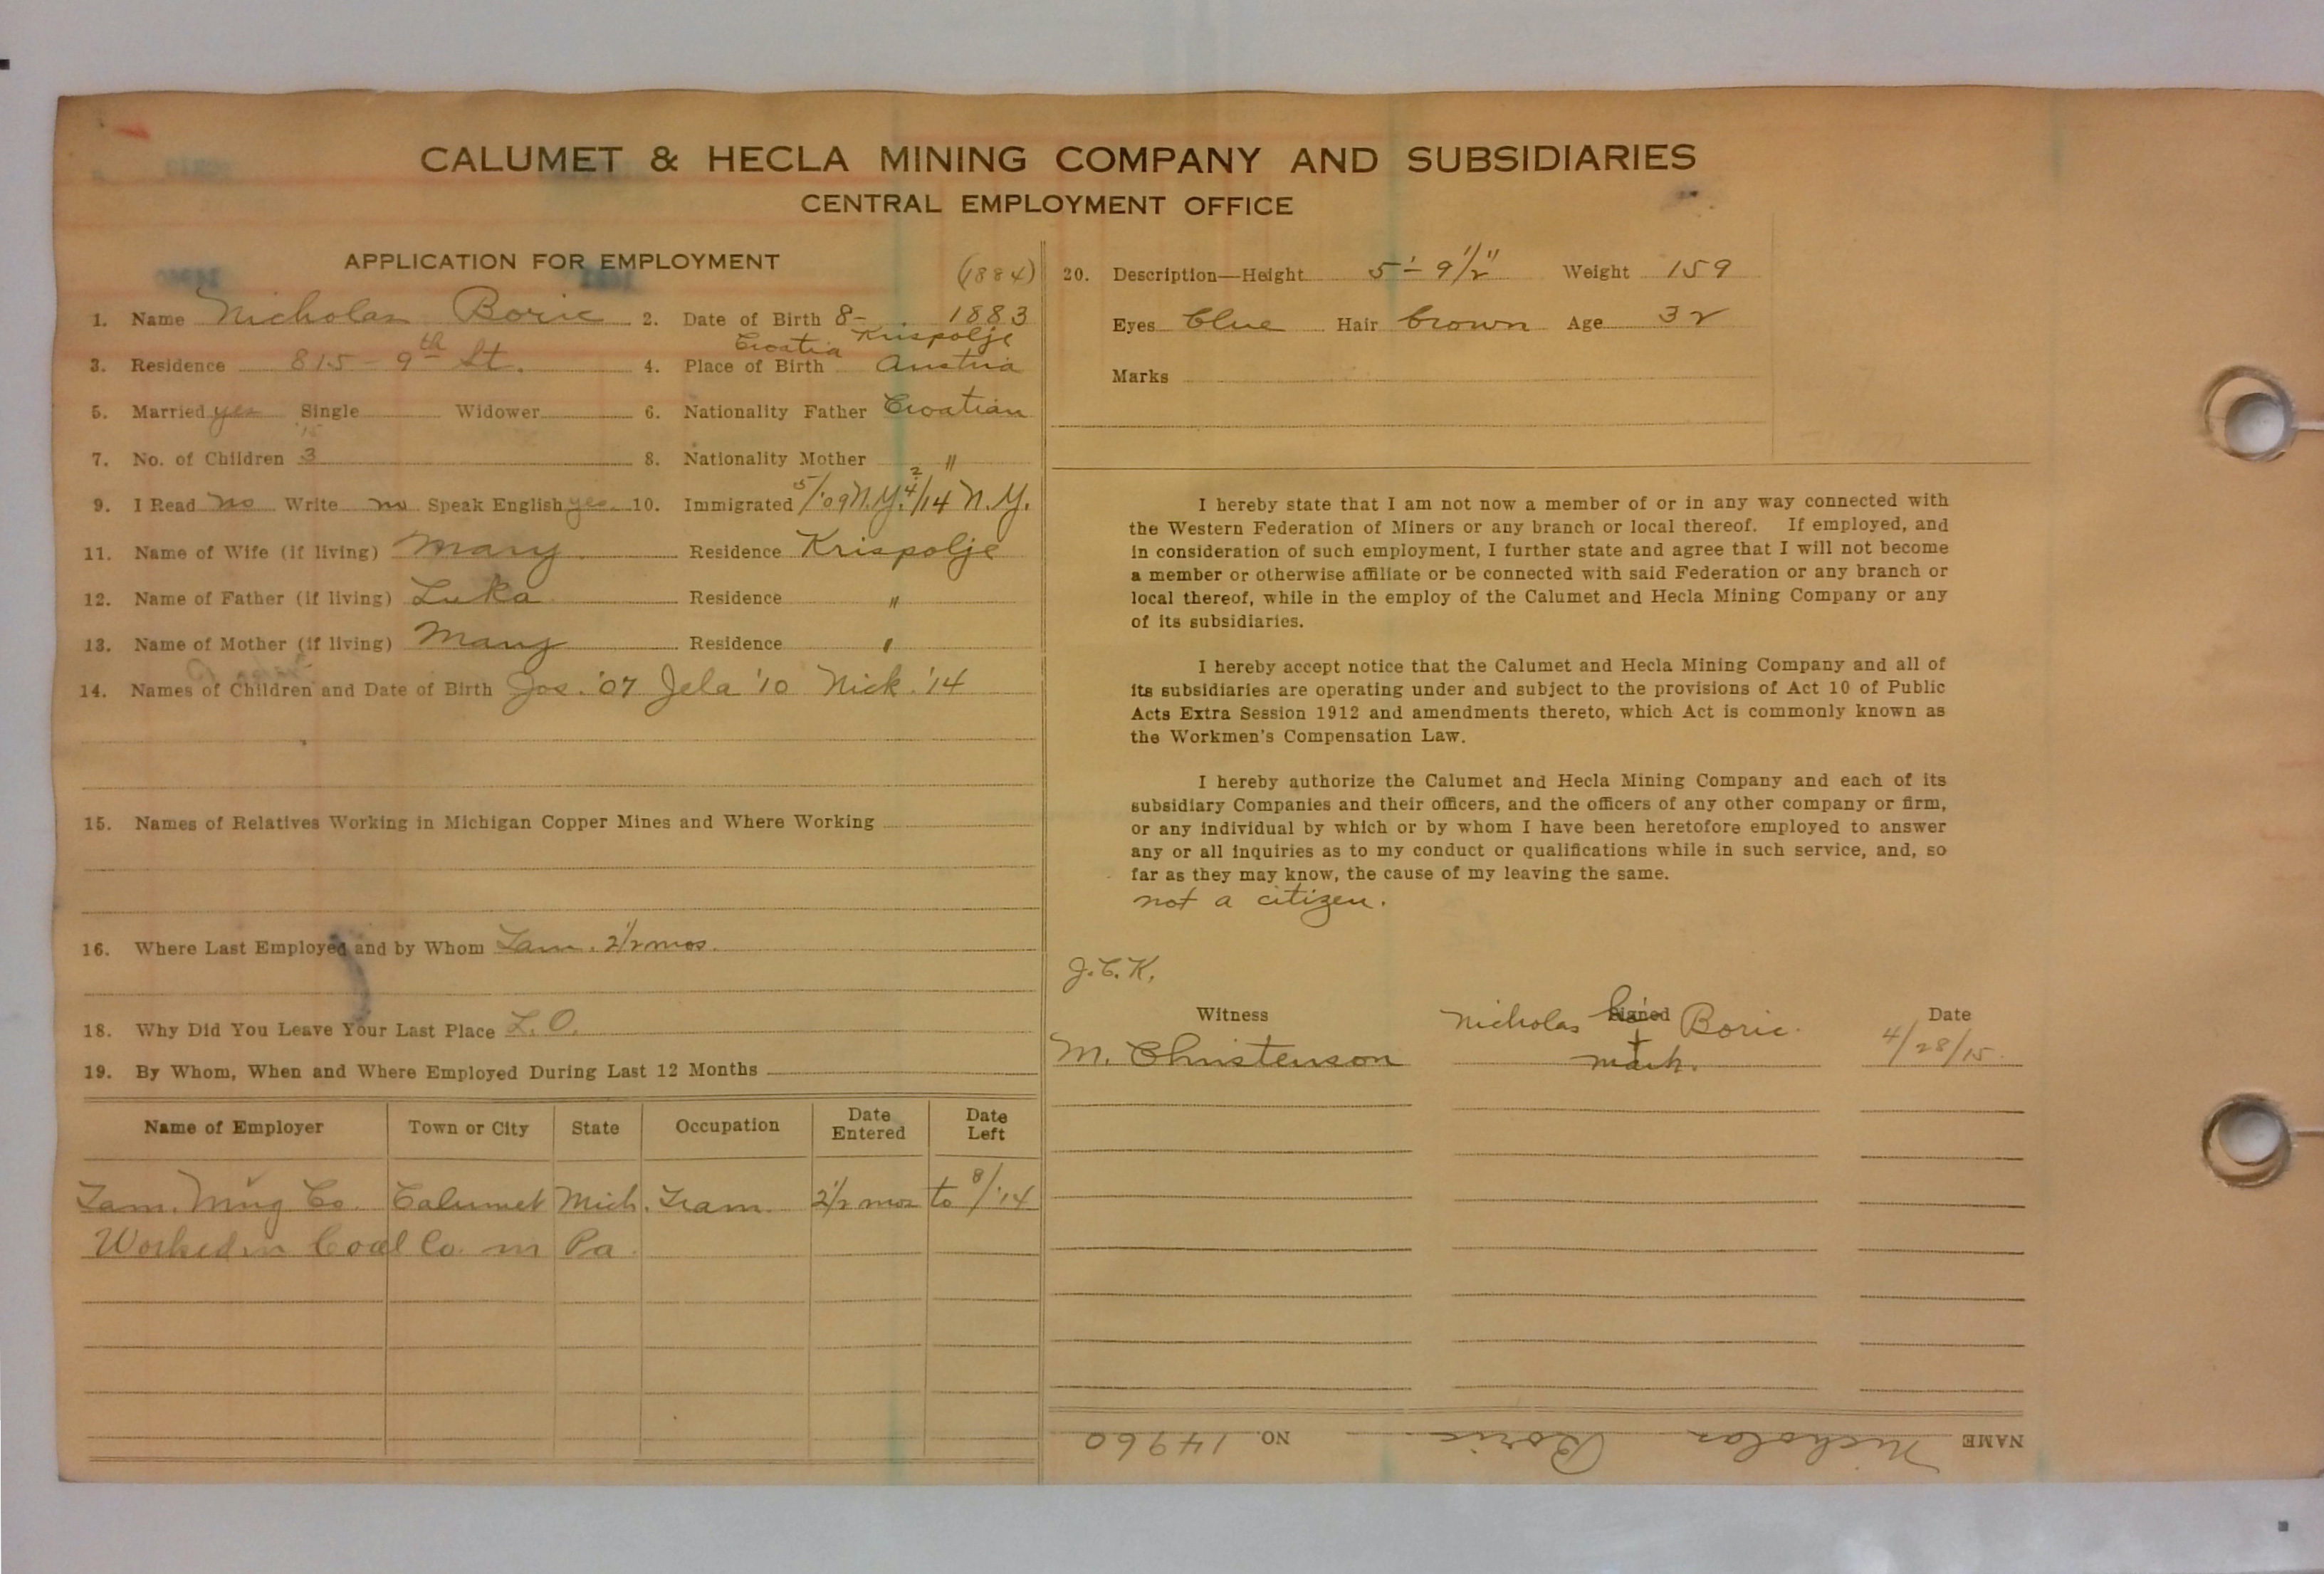 CALUMET & HECLA MINING COMPANY AND SUBSIDIARIES
CENTRAL EMPLOYMENT OFFICE
APPLICATION FOR EMPLOYMENT
(1884)
1. Name Nicholas Boric 2. Date of Birth 8- 1883
Croatia Krispolje
3. Residence 815 - 9th St. 4. Place of Birth Austria
5. Married yes Single Widower 6. Nationality Father Croatian
'15
7. No. of Children 3 8. Nationality Mother "
9. I Read no Write no Speak English yes 10. Immigrated 5/'09 N.Y. 2/4/14 N.Y.
11. Name of Wife (if living) Mary Residence Krispolje
12. Name of Father (if living) Luka Residence "
13. Name of Mother (if living) Mary Residence "
14. Names of Children and Date of Birth Jos. '07 Jela '10 Nick. '14
15. Names of Relatives Working in Michigan Copper Mines and Where Working
16. Where Last Employed and by Whom Tam. 2 1/2 mos.
18. Why Did You Leave Your Last Place L.O.
19. By Whom, When and Where Employed During Last 12 Months
Name of Employer Town or City State Occupation Date Entered Date Left
Tam. Mng Co. Calumet Mich. Tram. 2 1/2 mos to 8/'14
Worked in Coal Co. in Pa.
20. Description—Height 5'-9 1/2" Weight 159
Eyes blue Hair brown Age 32
Marks
I hereby state that I am not now a member of or in any way connected with
the Western Federation of Miners or any branch or local thereof. If employed, and
in consideration of such employment, I further state and agree that I will not become
a member or otherwise affiliate or be connected with said Federation or any branch or
local thereof, while in the employ of the Calumet and Hecla Mining Company or any
of its subsidiaries.
I hereby accept notice that the Calumet and Hecla Mining Company and all of
its subsidiaries are operating under and subject to the provisions of Act 10 of Public
Acts Extra Session 1912 and amendments thereto, which Act is commonly known as
the Workmen's Compensation Law.
I hereby authorize the Calumet and Hecla Mining Company and each of its
subsidiary Companies and their officers, and the officers of any other company or firm,
or any individual by which or by whom I have been heretofore employed to answer
any or all inquiries as to my conduct or qualifications while in such service, and, so
far as they may know, the cause of my leaving the same.
not a citizen.
J.C.K.
Witness Signed Date
Nicholas his Boric.
M. Christenson mark. 4/28/15.
NAME Nicholas Boric NO. 14960